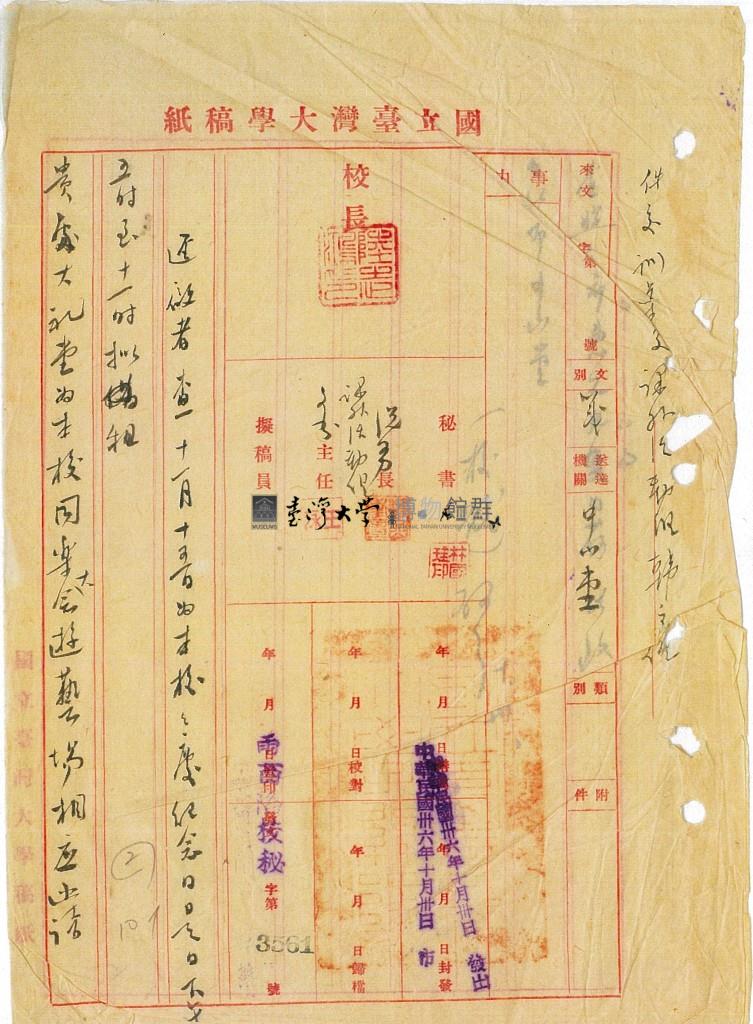 國立臺灣大學稿紙
件交訓導處課外活動組韓主任
來文 字第 號
文別 箋
送達機關 中山堂
類別
附件
事由
校長
秘書
長
課外活動組
主任
擬稿員
年 月 日封發
年 月 日校對
年 月 日歸檔
年 月 日繕印
中華民國卅六年十月卅日
中華民國卅六年十月卅日 發出
發文 校秘 字第 3561 號
臺灣大學 博物館群
MUSEUMS
NATIONAL TAIWAN UNIVERSITY MUSEUMS
逕啟者查十一月十五日為本校校慶紀念日是日下午
五時至十一時擬借租
貴處大礼堂為本校同樂大会遊藝場相应函請
國立臺灣大學稿紙